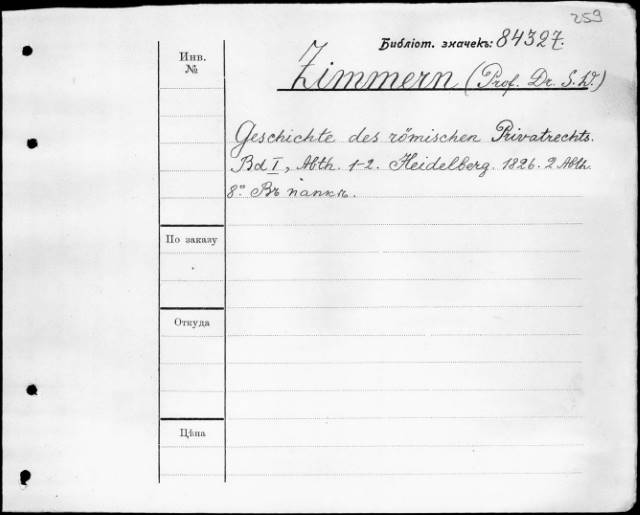 259
Библіот. значекъ: 84327.
Инв. №
Zimmern (Prof. Dr. S. W.)
Geschichte des römischen Privatrechts.
Bd I, Abth. 1-2. Heidelberg. 1826. 2 Abth.
8° Въ папкѣ.
По заказу
Откуда
Цѣна